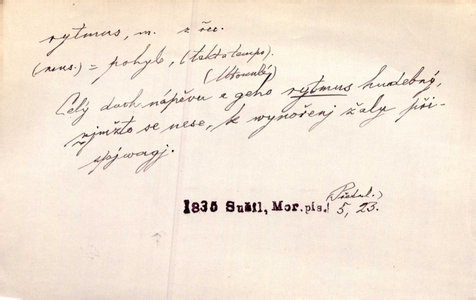 rytmus, m. z řec.
(mus.) = pohyb, (takt a tempo).
Celý duch nápěvu a geho rytmus hudebný,
njmžto se nese, k wynořenj žaly při-
spjwagj.
(Předml.)
1835 Sušil, Mor.pís. 5, 23.